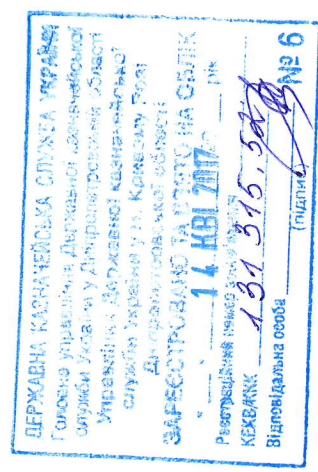 ДЕРЖАВНА КАЗНАЧЕЙСЬКА СЛУЖБА УКРАЇНИ
Головне управління Державної казначейської
служби України у Дніпропетровській області
Управління Державної казначейської
служби України у м. Кривому Розі
Дніпропетровської області
ЗАРЕЄСТРОВАНО ТА ВЗЯТО НА ОБЛІК
14 КВІ 2017 рік
Реєстраційний номер
КЕКВ/ККК 131 315.52
Відповідальна особа
(підпис) № 6